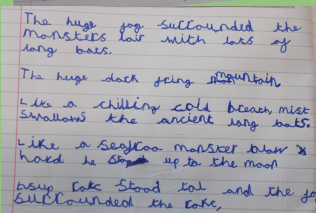 The huge fog surrounded the
monsters lair with lots of
long boats.
The huge dark fring mountain
Like a chilling cold breath, mist
swallows the ancient long boats.
Like a monster blow
hard he up to the moon
stood tal and the fo
surrounded the